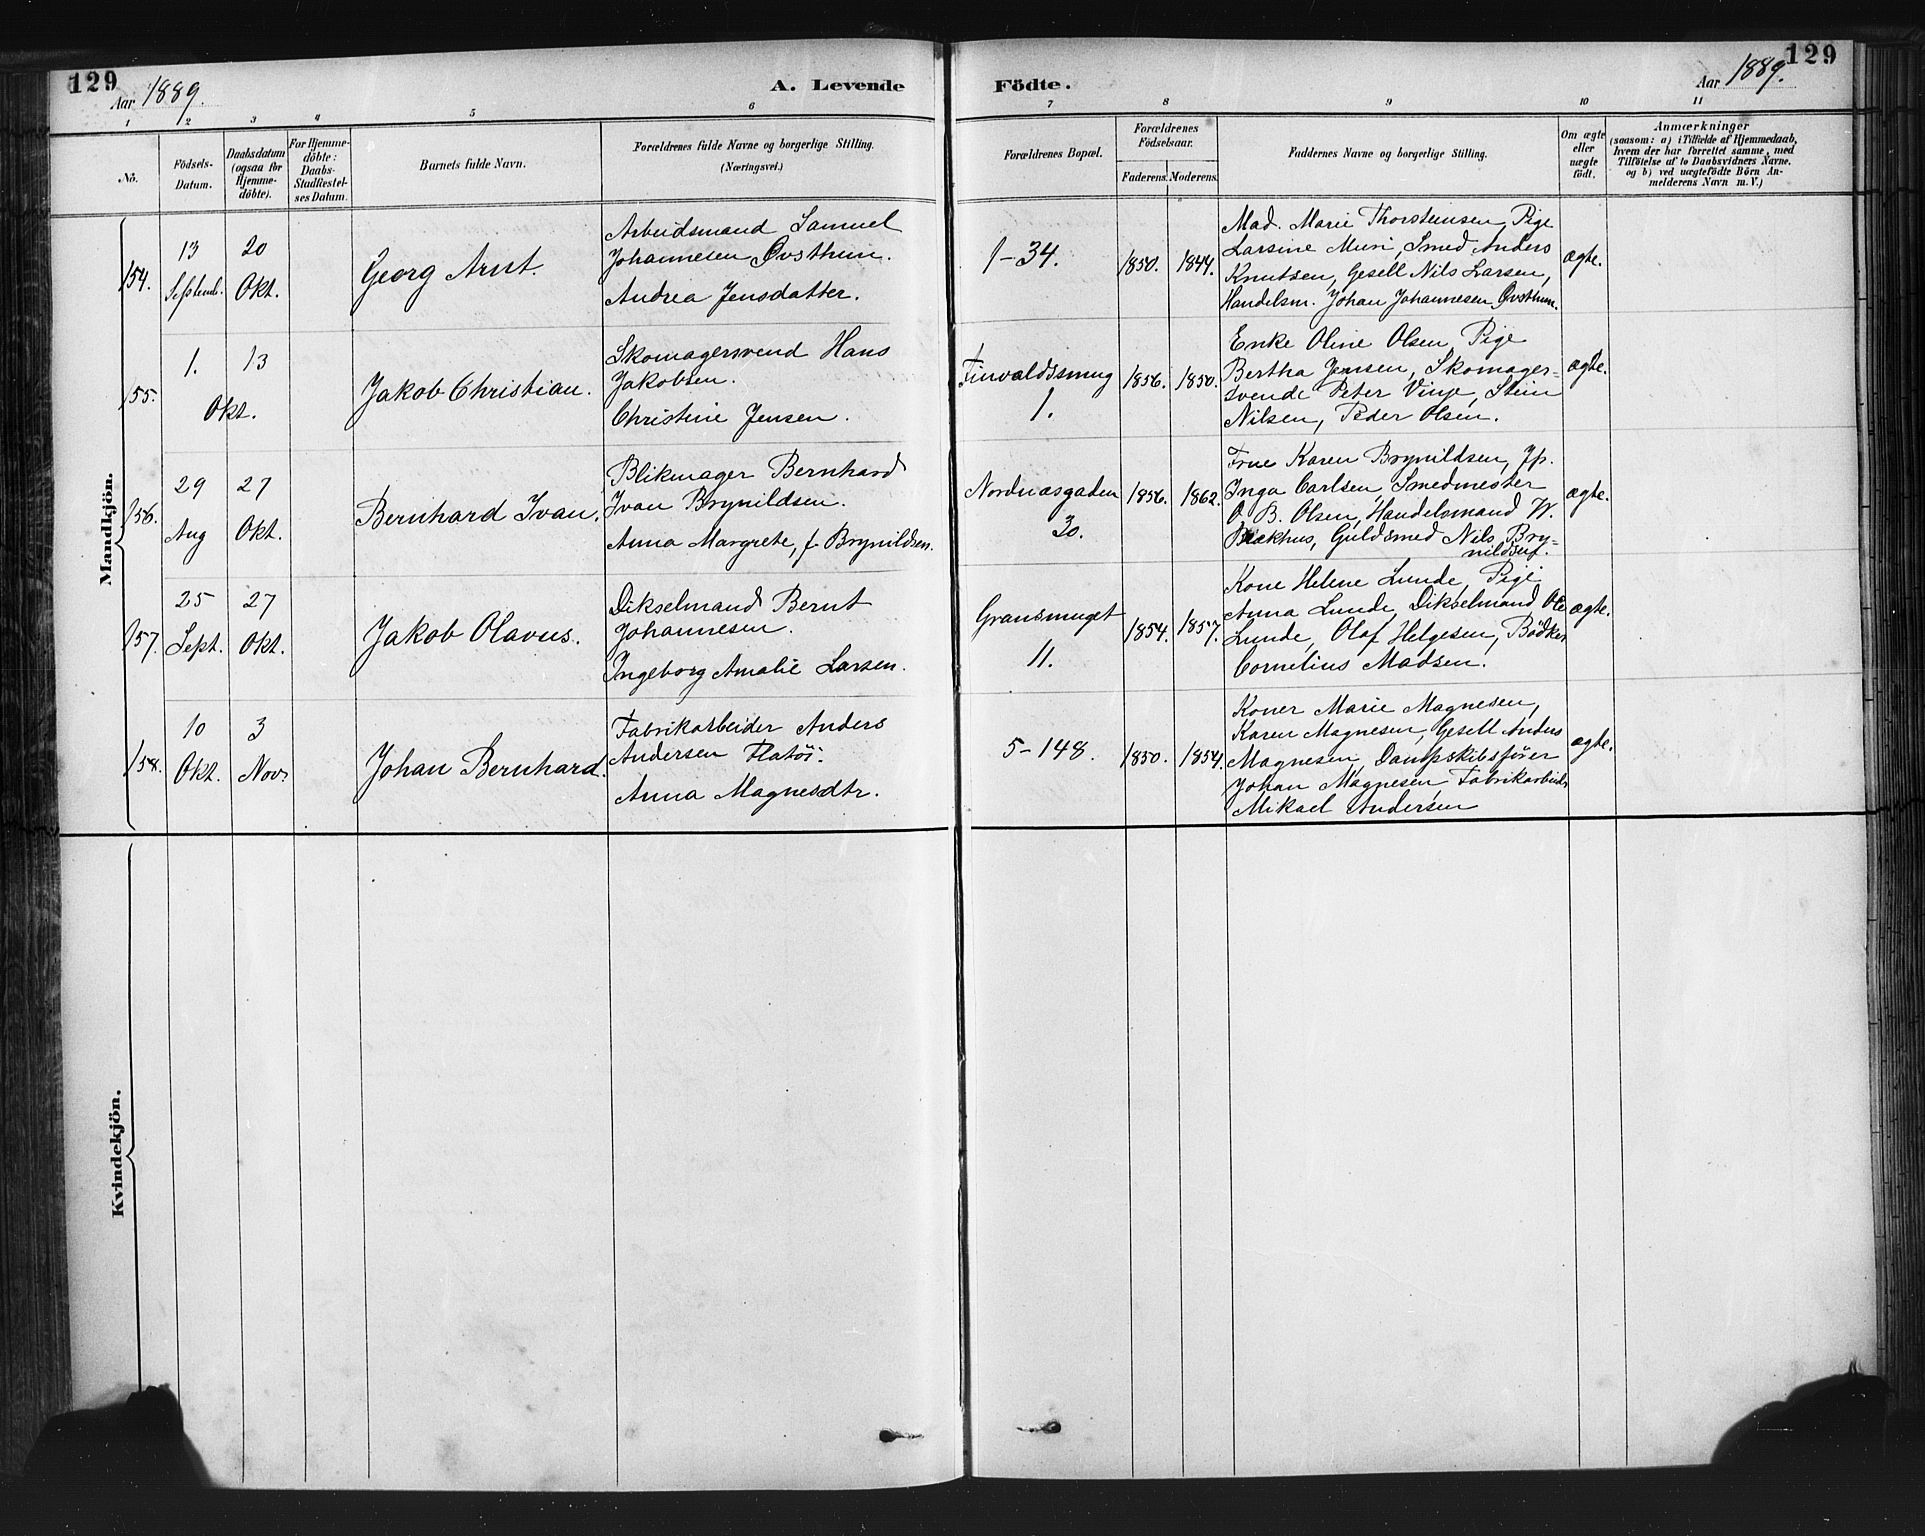 129
Aar 1889.
A. Levende
Födte.
Aar 1889.
129
1 2 3 4 5 6 7 8 9 10 11
Nö.
Födsels-
Datum.
Daabsdatum
(ogsaa for
Hjemme-
döbte).
For Hjemme-
döbte:
Daabs-
Stadfæstel-
ses Datum.
Barnets fulde Navn.
Forældrenes fulde Navne og borgerlige Stilling.
(Næringsvei.)
Forældrenes Bopæl.
Forældrenes
Födselsaar.
Faderens. Moderens.
Faddernes Navne og borgerlige Stilling.
Om ægte
eller
uægte
födt.
Anmærkninger
(saasom: a) i Tilfælde af Hjemmedaab,
hvem der har forrettet samme, med
Tilföielse af to Daabsvidners Navne.
og b) ved uægtefödte Börn An-
melderens Navn m. V.)
Mandkjön.
154.
13
Septemb.
20
Okt.
Georg Arnt.
Arbeidsmand Samuel
Johannesen Øvsthun.
Andrea Jensdatter.
1-34.
1850. 1844.
Mad. Marie Thorsteinsen, Pige
Larsine Muri, Smed Anders
Knutsen, Gesell Nils Larsen,
Handelsm. Johan Johannesen Øvsthun.
ægte.
155.
1. 13
Okt.
Jakob Christian.
Skomagersvend Hans
Jakobsen.
Christine Jensen.
Finvaldssmug
1.
1856. 1850.
Enke Oline Olsen, Pige
Bertha Jensen, Skomager-
svende Peter Vinje, Stein
Nilsen, Peder Olsen.
ægte.
156.
29
Aug
27
Okt.
Bernhard Ivan.
Blikmager Bernhard
Ivan Brynildsen.
Anna Margrete, f. Brynildsen.
Nordnæsgaden
30.
1856. 1862.
Frue Karen Brynildsen, Jp.
Inga Carlsen, Smedmester
O. B. Olsen, Handelsmand W.
Blækhus, Guldsmed Nils Bry-
nildsen.
ægte.
157.
25
Sept.
27
Okt.
Jakob Olavus.
Dikselmand Bernt
Johannesen.
Ingeborg Amalie Larsen.
Gransmuget
11.
1854. 1857.
Kone Helene Lunde, Pige
Anna Lunde, Dikselmand Ole
Lunde, Olaf Helgesen, Bødker
Cornelius Madsen.
ægte.
158.
10
Okt.
3
Nov.
Johan Bernhard.
Fabrikarbeider Anders
Andersen Flatöi.
Anna Magnesdtr.
5-148.
1850. 1854.
Koner Marie Magnesen,
Karen Magnesen, Gesell Anders
Magnesen, Dampskibsfører
Johan Magnesen, Fabrikarbeider
Mikael Andersen
ægte.
Kvindekjön.